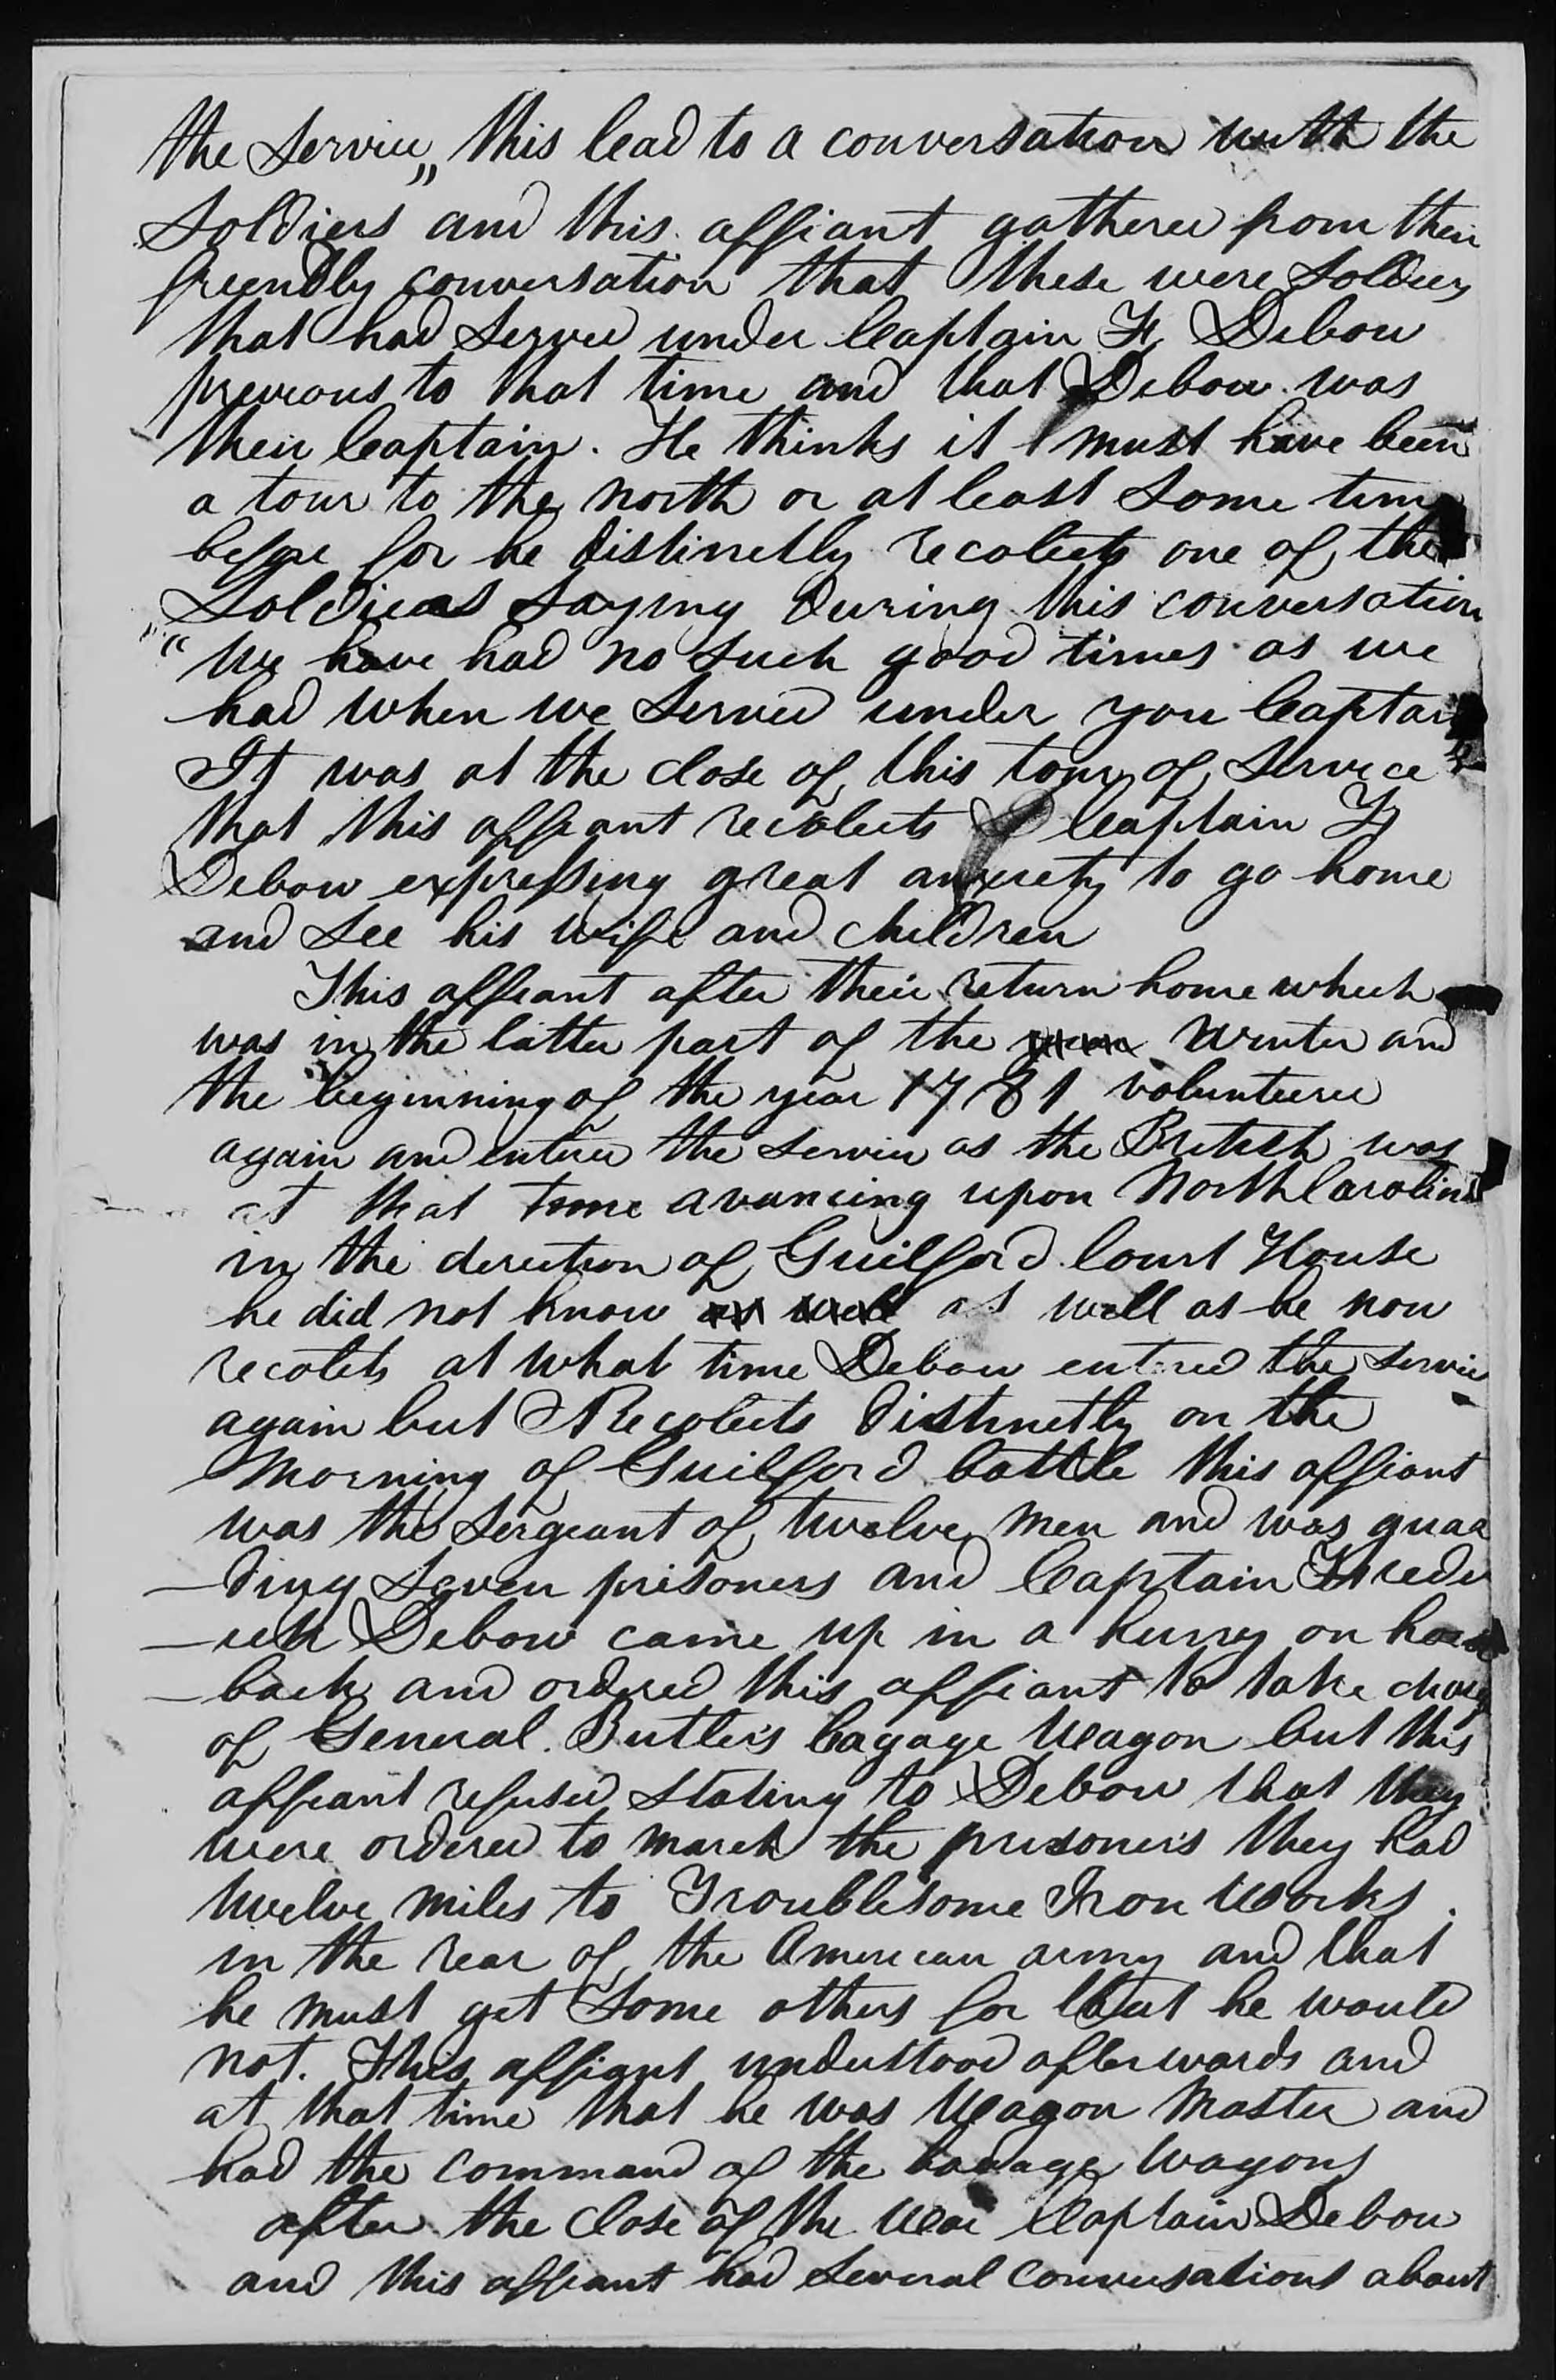 the Service„ this lead to a conversation with the
Soldiers and this affiant gathered from their
freendly conversation that these were Soldiers
that had Served under Captain F. Debow
previous to that time and that Debow was
their Captain. He thinks it must have been
a tour to the north or at least Some time
before for he distinctly recolects one of the
Soldiers Saying during this conversation
"We have had no Such good times as we
had when we Served under you Captain
It was at the close of this tour of Service
that this affiant recolects Captain F
Debow expressing great anxiety to go home
and See his wife and children
This affiant after their return home which
was in the latter part of the winter and
the beginning of the year 1781 volunteered
again and entered the Service as the British was
at that time avancing upon North Carolina
in the derection of Guilford Court House
he did not know as well as he now
recolets at what time Debow entred the Service
again but Recolects distinctly on the
Morning of Guilford battle this affiant
was the Sergeant of twelve men and was guar
—ding Seven prisoners and Captain Frede
—rick Debow came up in a hurry on horse
—back and ordered this affiant to take charg
of General Butler's bagage Wagon but this
affiant refused Stating to Debow that they
were ordered to march the prisoners they had
twelve miles to Troublesome Iron Works.
in the rear of the American army and that
he must get Some others for that he would
not. This affiant understood afterwards and
at that time that he was Wagon Master and
had the command of the bagage Wagons
after the close of the War Captain Debow
and this affiant had Several conversations about